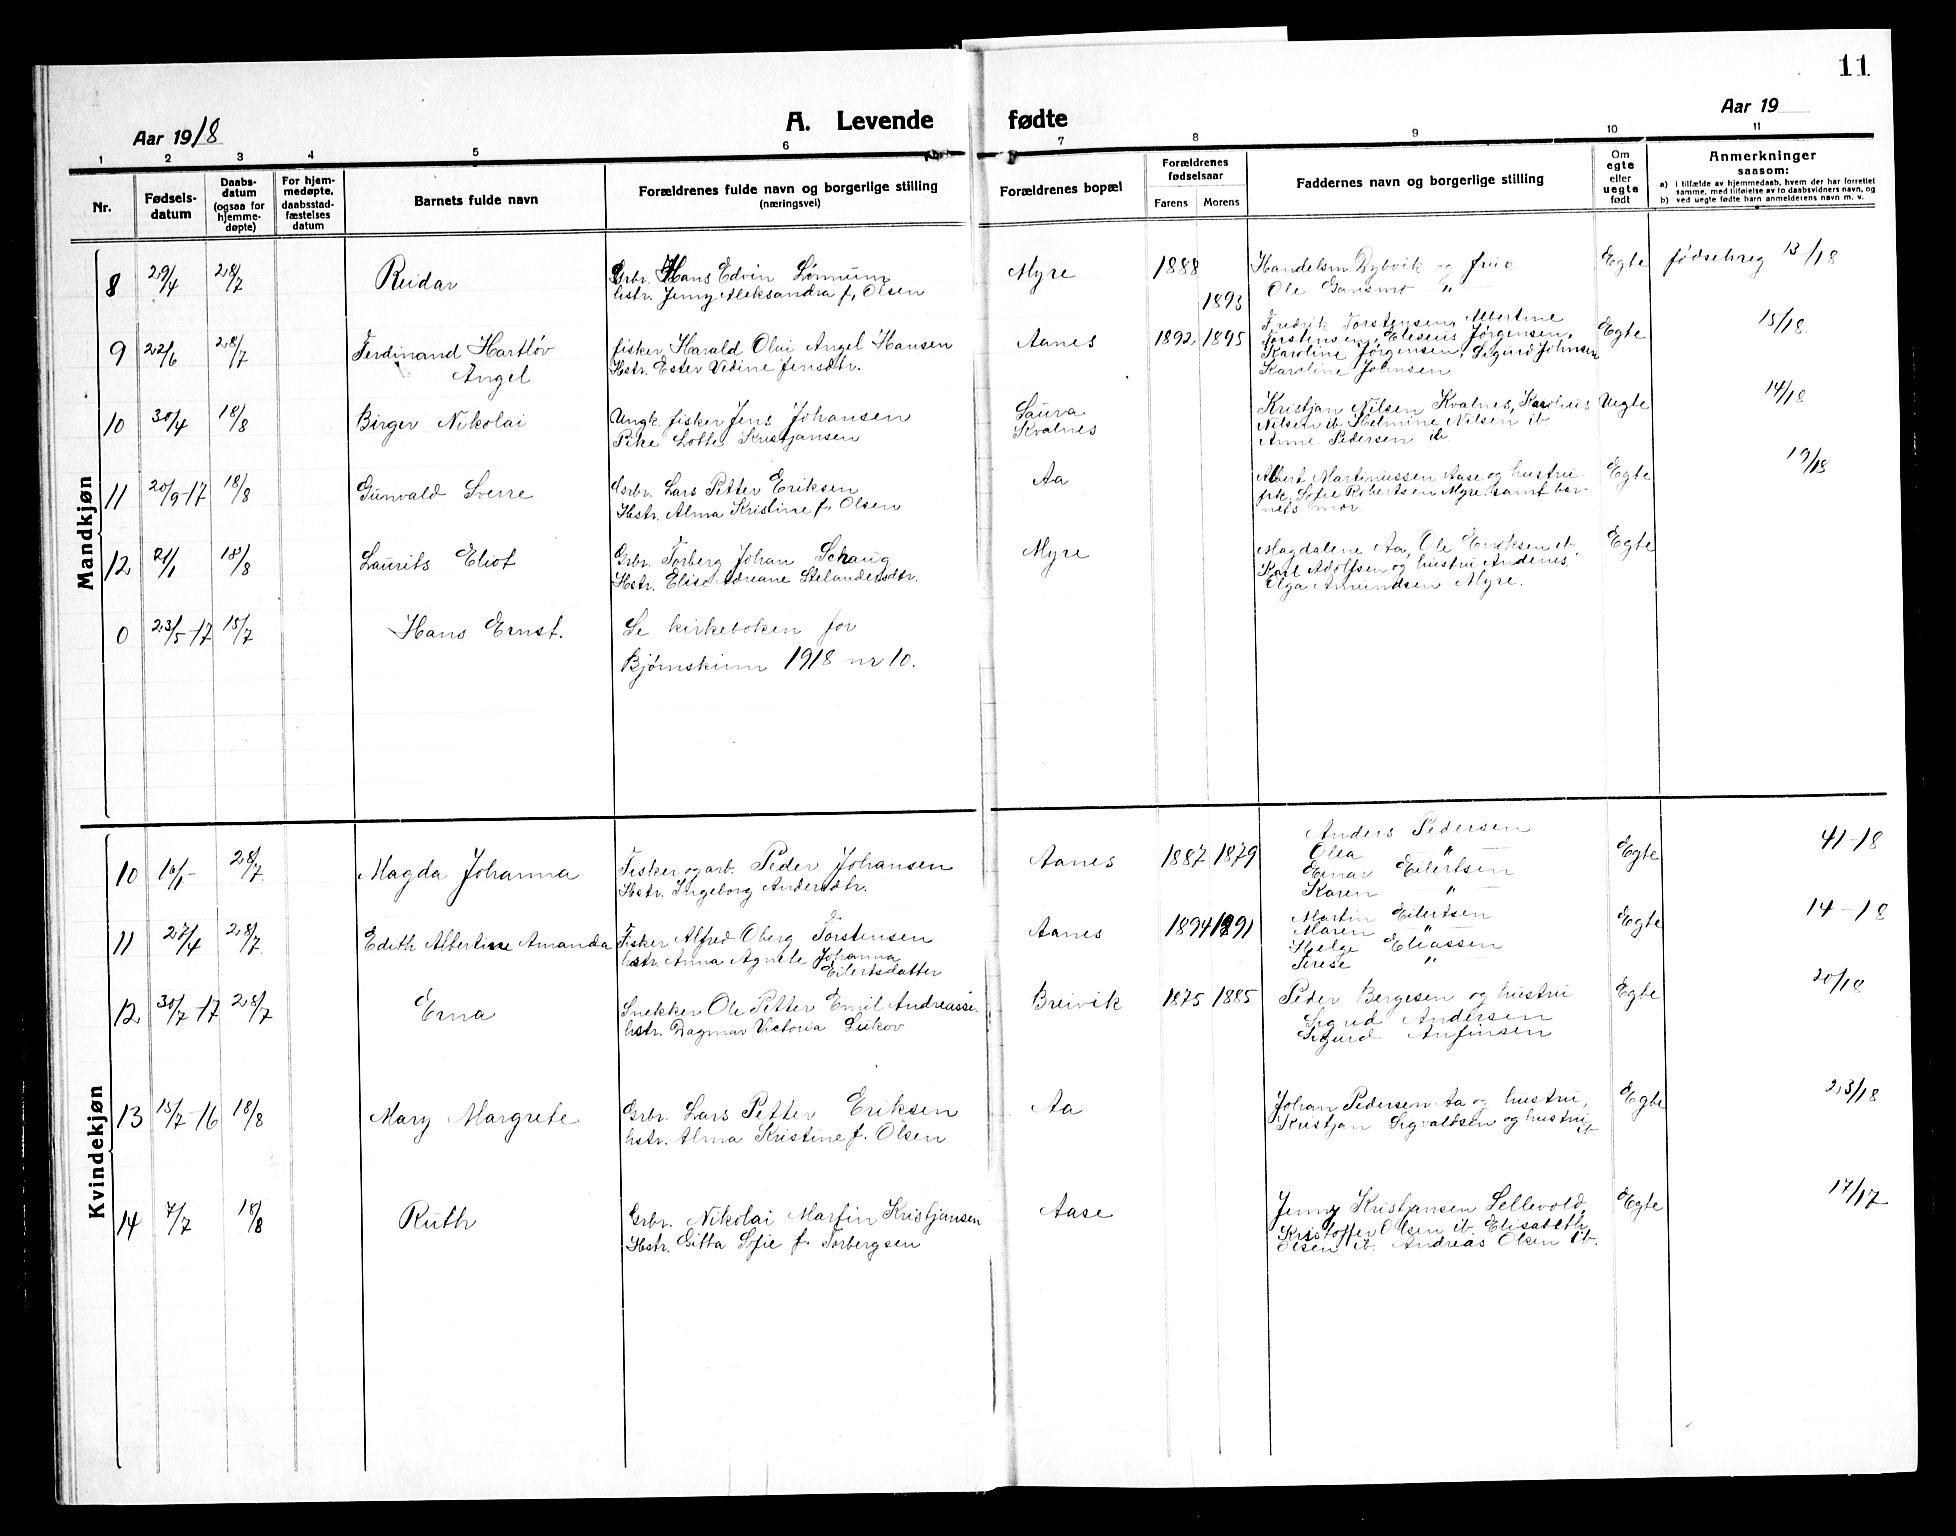 11
Aar 1918
A. Levende fødte
Aar 19
1 2 3 4 5 6 7 8 9 10 11
Nr.
Fødsels-
datum
Daabs-
datum
(ogsaa for
hjemme-
døpte)
For hjem-
medøpte,
daabsstad-
fæstelses
datum
Barnets fulde navn
Forældrenes fulde navn og borgerlige stilling
(næringsvei)
Forældrenes bopæl
Forældrenes
fødselsaar
Farens Morens
Faddernes navn og borgerlige stilling
Om
egte
eller
uegte
født
Anmerkninger
saasom:
a) i tilfælde av hjemmedaab, hvem der har forrettet
samme, med tilføielse av to daabsvidners navn, og
b) ved uegte fødte barn anmelderens navn m. v.
Mandkjøn
8 29/4 28/7 Reidar
Grbr. Hans Edvin Lønnum
hstr. Jenny Aleksandra f. Olsen
Myre 1888 1893
Handelsm. Dybvik og frue
Ole Gansmo "
Egte fødselsreg 13/18
9 22/6 28/7 Ferdinand Hartløv
Angel
fisker Harald Olui Angel Hansen
Hstr. Ester Vedine Jensdtr.
Aanes 1892 1895
Fredrik Torstensen, Albertine
Torstensen, Eliseus Jørgensen,
Karoline Jørgensen, Sigurd Johnsen
Karoline Johnsen
Egte 15/18
10 30/4 18/8 Birger Nikolai
Ungk. fisker Jens Johansen
Pike Lotte Kristjansen
Saura
Kvalnes
Kristjan Nilsen Kvalnes, Karelius
Nilsen ib. Helmine Nilsen ib
Anne Pedersen ib
Uegte 14/18
11 20/9-17 18/8 Gunvald Sverre
Grbr. Lars Petter Eriksen
Hstr. Alma Kristine f. Olsen
Aa
Albert Martinussen Aase og hustru
frk. Sofie Robertsen Myre samt bar-
nets mor
Egte 19/18
12 21/1 18/8 Laurits Eliot
Grbr. Torberg Johan Schaug
Hstr. Elise Adreane Stelandersdtr.
Myre
Magdalene Aa, Ole Eriksen ib.
Karl Adolfsen og hustru Andenes,
Olga Amundsen Myre.
Egte
0 23/5-17 15/7 Hans Ernst.
Se kirkeboken for
Bjørnskinn 1918 nr 10.
Kvindekjøn
10 16/1- 28/7 Magda Johanna
Fisker og arb. Peder Johansen
Hstr. Ingeborg Andersdtr.
Aanes 1887 1879
Anders Pedersen
Olea "
Einar Eilertsen
Karen "
Egte 41-18
11 27/4 28/7 Edith Albertine Amanda
Fisker Alfred Oberg Torstensen
hstr. Anna Agnete Johanna
Eilertsdatter
Aanes 1894 1891
Martin Eilertsen
Maren "
Helge Eliassen
Terese "
Egte 14-18
12 30/7-17 28/7 Erna
Snekker Ole Petter Emil Andreassen
hstr. Dagmar Victoria Lukov
Breivik 1875 1885
Peder Bergesen og hustru
Sigrid Andersen
Sigurd Anfinsen
Egte 20/18
13 15/7-16 18/8 Mary Margrete
Grbr. Lars Petter Eriksen
hstr. Alma Kristine f. Olsen
Aa
Johan Pedersen Aa og hustru,
Kristjan Sigvaldsen og hustru ib
Egte 23/18
14 7/7 18/8 Ruth
Grbr. Nikolai Martin Kristjansen
Hstr. Gitta Sofie f. Torbergsen
Aase
Jenny Kristjansen Sellevold,
Kristoffer Olsen ib. Elisabeth
Olsen ib. Andreas Olsen ib.
Egte 17/17